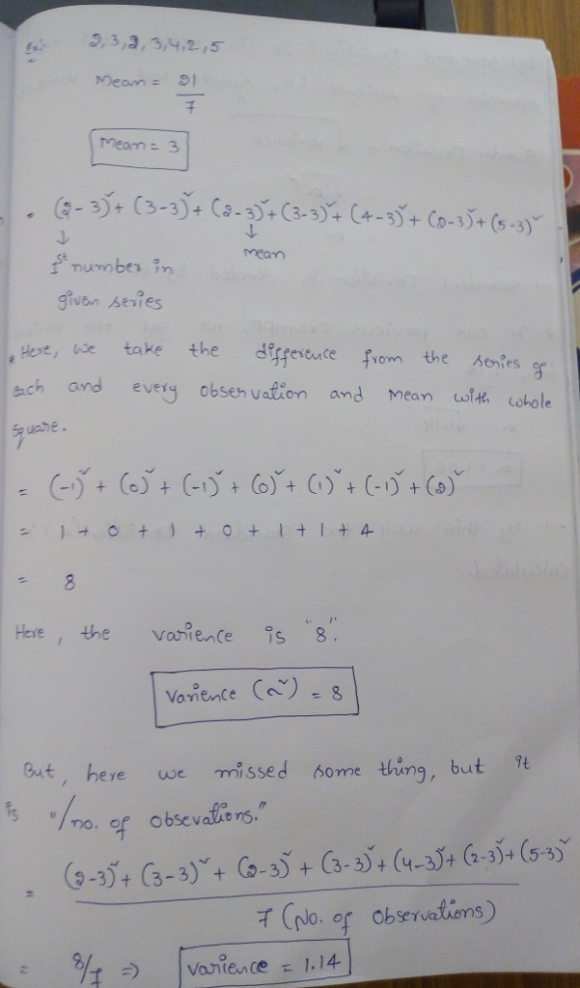 Ex:- 2,3,2,3,4,2,5
Mean = 21/7
Mean = 3
(2-3)² + (3-3)² + (2-3)² + (3-3)² + (4-3)² + (2-3)² + (5-3)²
↓ ↓
1st number in Mean
given series
Here, we take the difference from the series of
each and every observation and Mean with whole
square.
= (-1)² + (0)² + (-1)² + (0)² + (1)² + (-1)² + (2)²
= 1 + 0 + 1 + 0 + 1 + 1 + 4
= 8
Here, the varience is "8".
Varience (~²) = 8
But, here we missed some thing, but it
is "/no. of obsevations."
= (2-3)² + (3-3)² + (2-3)² + (3-3)² + (4-3)² + (2-3)² + (5-3)²
7 (No. of Observations)
= 8/7 => varience = 1.14